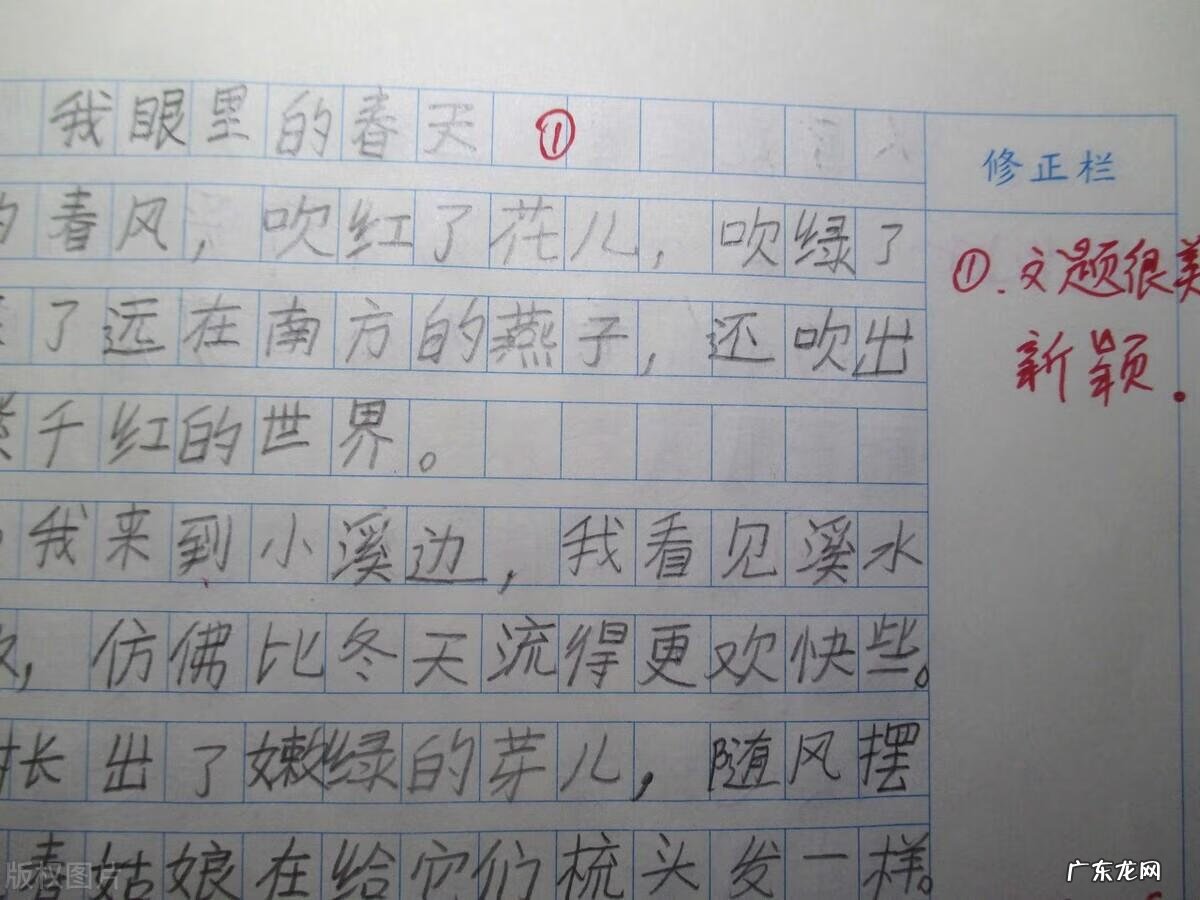 我眼里的春天 ①
修正栏
的春风，吹红了花儿，吹绿了
①.文题很美
了远在南方的燕子，还吹出
新颖.
紫千红的世界。
我来到小溪边，我看见溪水
，仿佛比冬天流得更欢快些。
长出了嫩绿的芽儿，随风摆
春姑娘在给它们梳头发一样。
版权图片
广东龙网